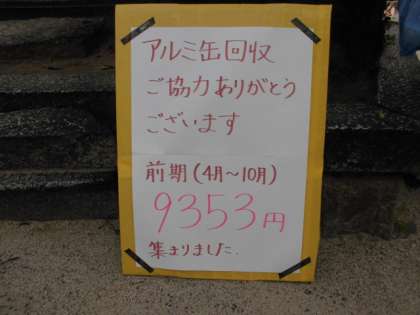 アルミ缶回収
ご協力ありがとう
ございます
前期(4月～10月)
9353円
集まりました.